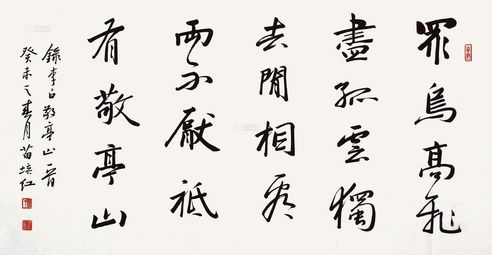 眾鳥高飛
盡孤雲獨
去閒相看
兩不厭祗
有敬亭山
錄李白敬亭山一首
癸未之春月苗培红